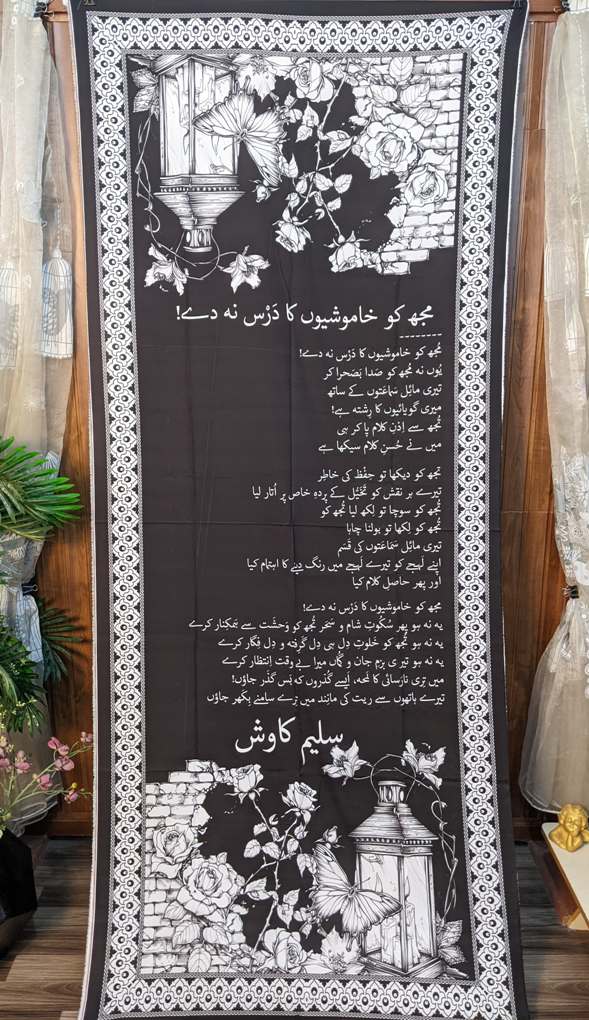 مجھ کو خاموشیوں کا دَرْس نہ دے!
مُجھ کو خاموشیوں کا دَرْس نہ دے!
یُوں نہ مُجھ کو صَدا بَصَحرا کر
تیری مائِل سَماعَتوں کے ساتھ
میری گویائیوں کا رِشتہ ہے!
تُجھ سے اِذنِ کلام پا کر ہی
میں نے حُسنِ کلام سیکھا ہے
تجھ کو دیکھا تو حِفْظ کی خاطِر
تیرے ہر نقش کو تَخَیُّل کے پردِہ خاص پر اُتار لیا
تُجھ کو سوچا تو لِکھ لیا تُجھ کو
تُجھ کو لِکھا تو بولنا چاہا
تیری مائِل سَماعَتوں کی قَسَم
اپنے لَہجے کو تیرے لَہجے میں رنگ دینے کا اہتمام کیا
اور پھر حاصلِ کلام کیا
مجھ کو خاموشیوں کا دَرْس نہ دے!
یہ نہ ہو پھر سُکُوتِ شام و سَحَر تُجھ کو وَحشَت سے ہمکِنار کرے
یہ نہ ہو تُجھ کو خَلوتِ دِل ہی دِل گَرِفتہ و دِل فِگار کرے
یہ نہ ہو تیری بزمِ جان و گُماں میرا بے وقت اِنتظار کرے
میں تِری نارَسائی کا لمحہ، اَیسے گُذروں کہ بَس گُذَر جاؤں!
تیرے ہاتھوں سے ریت کی مانِند میں تِرے سامنے بِکھر جاؤں
سلیم کاوش